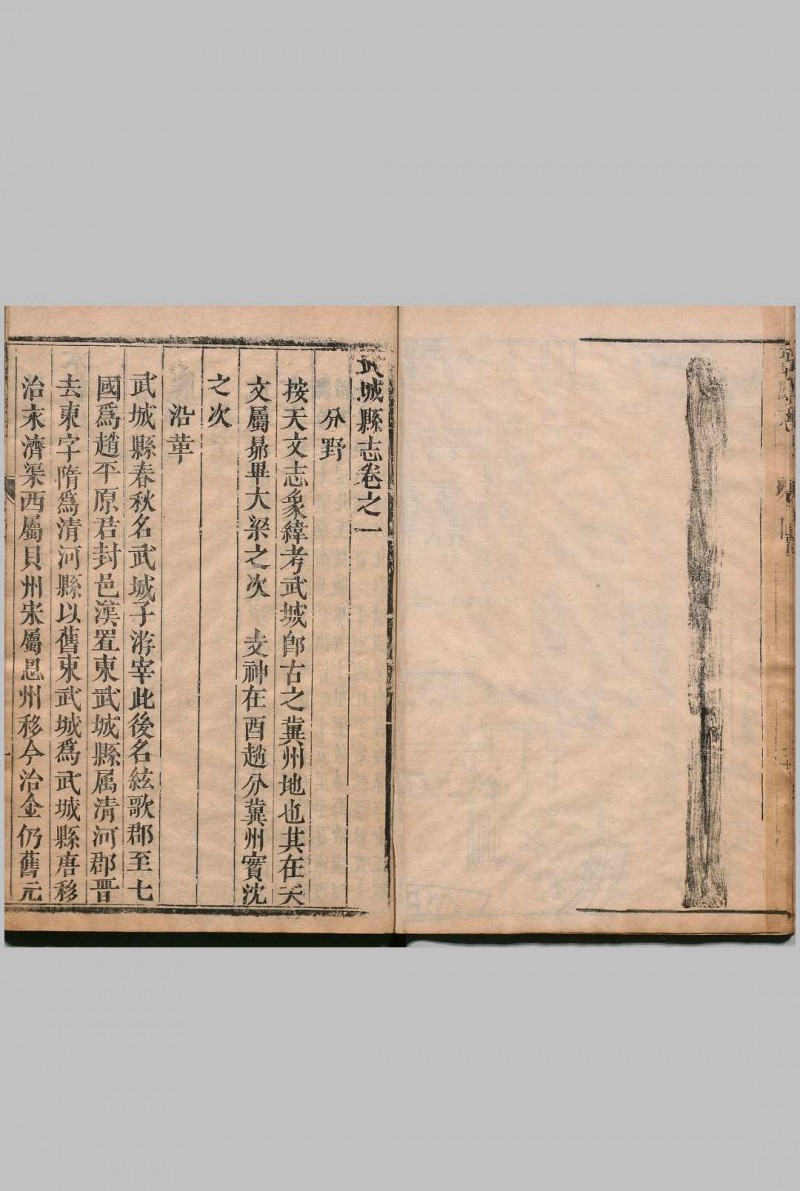 武城縣志卷之一
分野
按天文志象緯考武城卽古之冀州地也其在天
文屬昴畢大梁之次　　神在酉趙分冀州實沈
之次
沿革
武城縣春秋名武城子游宰此後名絃歌郡至七
國爲趙平原君封邑漢置東武城縣属清河郡晋
去東字隋爲清河縣以舊東武城爲武城縣唐移
治永濟渠西屬貝州宋屬恩州移今治金仍舊元